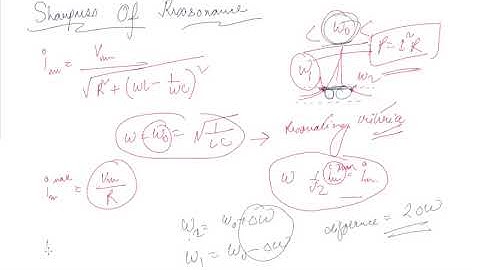 Sharpness Of Resonance
i_m = V_m / √(R² + (ωL - 1/ωC)²)
ω₀
P = I²R
ω₁
ω₂
ω = ω₀ = √(1/LC) → Resonating criteria
i_m^max = V_m / R
ω 1/√2 i_m^max = i_m
ω₂ = ω₀ + Δω
ω₁ = ω₀ - Δω
difference = 2Δω